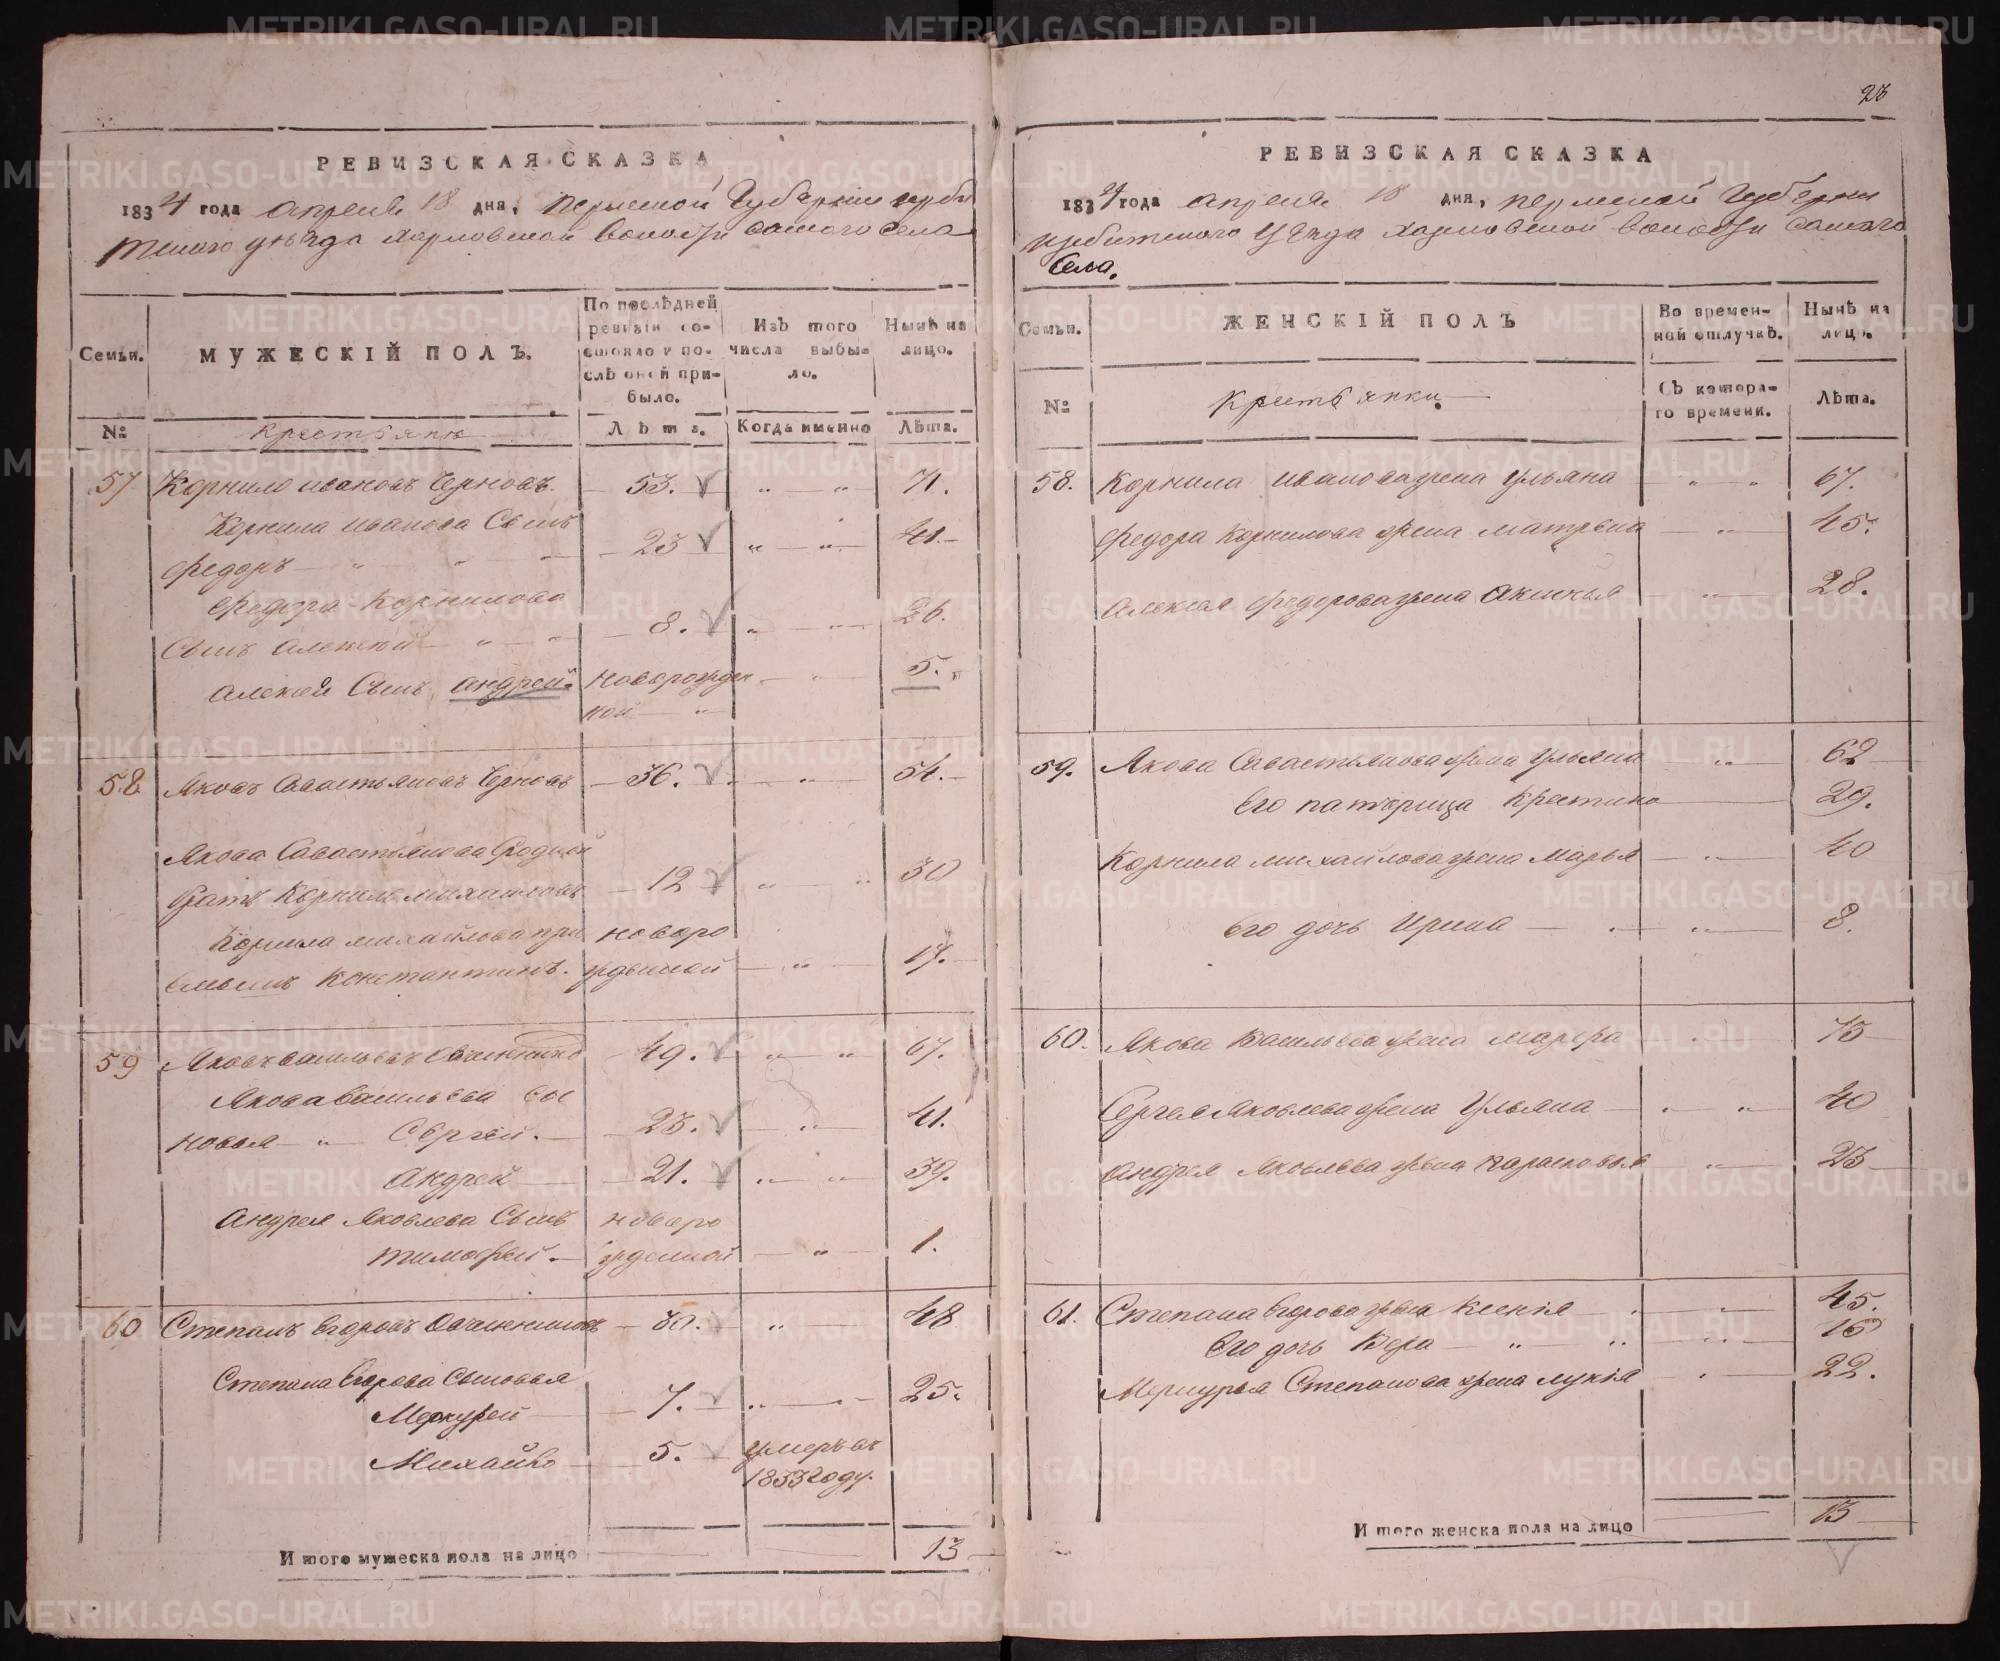 28
РЕВИЗСКАЯ СКАЗКА
1834 года апреля 18 дня, пермской Губернии ирби
тского уѣзда харловской Волости самого села
Семьи.
МУЖЕСКІЙ ПОЛЪ.
По послѣдней ревизіи состояло и послѣ оной прибыло.
Изъ того числа выбыло.
Нынѣ на лицо.
№
Крестьяне
Лѣта.
Когда именно
Лѣта.
57 Корнило ивановъ Черновъ. 53. " " 71.
Корнила иванова Сынъ
Федоръ " " 23 " " 41.
Федора Корнилова
Сынъ Алексѣй " " 8. " " 26.
алексѣй Сынъ андрей. новорожден
ной " " 5.
58 Яковъ Савастьяновъ Черновъ 36. " 54.
Якова Савастьянова Родной
братъ Корнило михайловъ 12 " " 30
Корнила михайлова при новоро
емышъ Константинъ. жденной " 17.
59 Яковъ васильевъ Овчиннико 49. " " 67.
Якова Васильева сы
новья " Сергей. 23. " 41.
Андрей 21. " " 39.
Андрея Яковлева Сынъ новоро
тимофей. жденной " 1.
60 Степанъ Егоровъ Овчинниковъ 30. " 48
Степана Егорова Сыновья
Меркурей 7. " 25.
Михайло 5. умеръ въ
1833 году.
Итого мужеска пола на лицо 13
РЕВИЗСКАЯ СКАЗКА
1834 года апреля 18 дня, пермской Губернии
ирбитского уѣзда харловской волости самого
Села.
Семьи.
ЖЕНСКІЙ ПОЛЪ
Во временной отлучкѣ.
Нынѣ на лицо.
№
Крестьянки.
Съ котораго времени.
Лѣта.
58. Корнила иванова жена Ульяна " " 67.
Федора Корнилова жена матрена " 45.
Алексея Федорова жена Акинья " 28.
59. Якова Савастьянова жена Ульяна " 62
Его патчерица Крестина 29.
Корнила михайлова жена Марья " 40
Его дочь Ирина " 8.
60. Якова Васильева жена Марфа 73
Сергея Яковлева жена Ульяна " " 40
Андрея Яковлева жена парасковья " 23
61. Степана Егорова жена Ксенія " 45.
Его дочь Вера " " " 16
Меркурья Степанова жена лукія 22.
Итого женска пола на лицо 13
METRIKI.GASO-URAL.RU